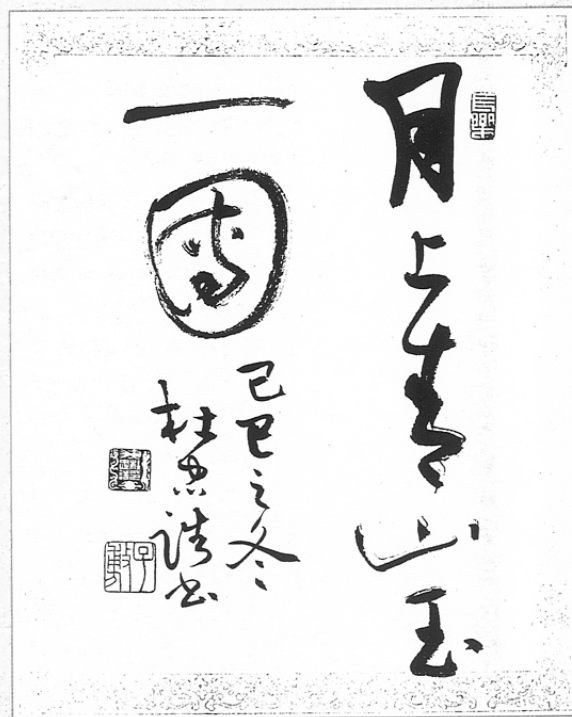 月上青山玉
一團
己巳之冬
杜忠誥書